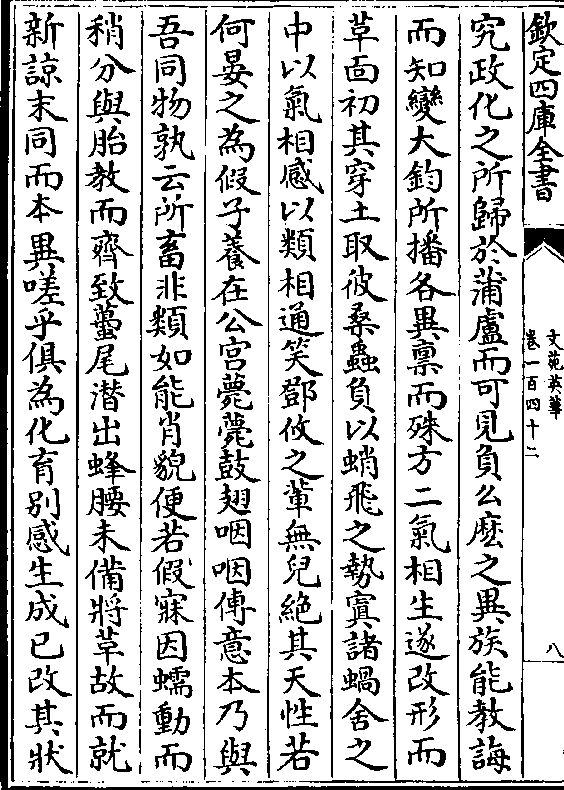 欽定四庫全書
文苑英華
卷一百四十二
八
究政化之所歸於蒲盧而可見負公麽之異族能教誨
而知變大鈞所播各異禀而殊方二氣相生遂改形而
草靣初其穿土取彼桑蟲負以蛸飛之勢寘諸蝸舍之
中以氣相感以類相通笑鄧攸之輩無兒絶其天性若
何晏之為假子養在公宫薨薨鼓翅咽咽傳意本乃與
吾同物孰云所畜非類如能肖貌便若假寐因蠕動而
稍分與胎教而齊致蠆尾潜出蜂腰未備將草故而就
新諒末同而本異嗟乎俱為化育别感生成已改其狀